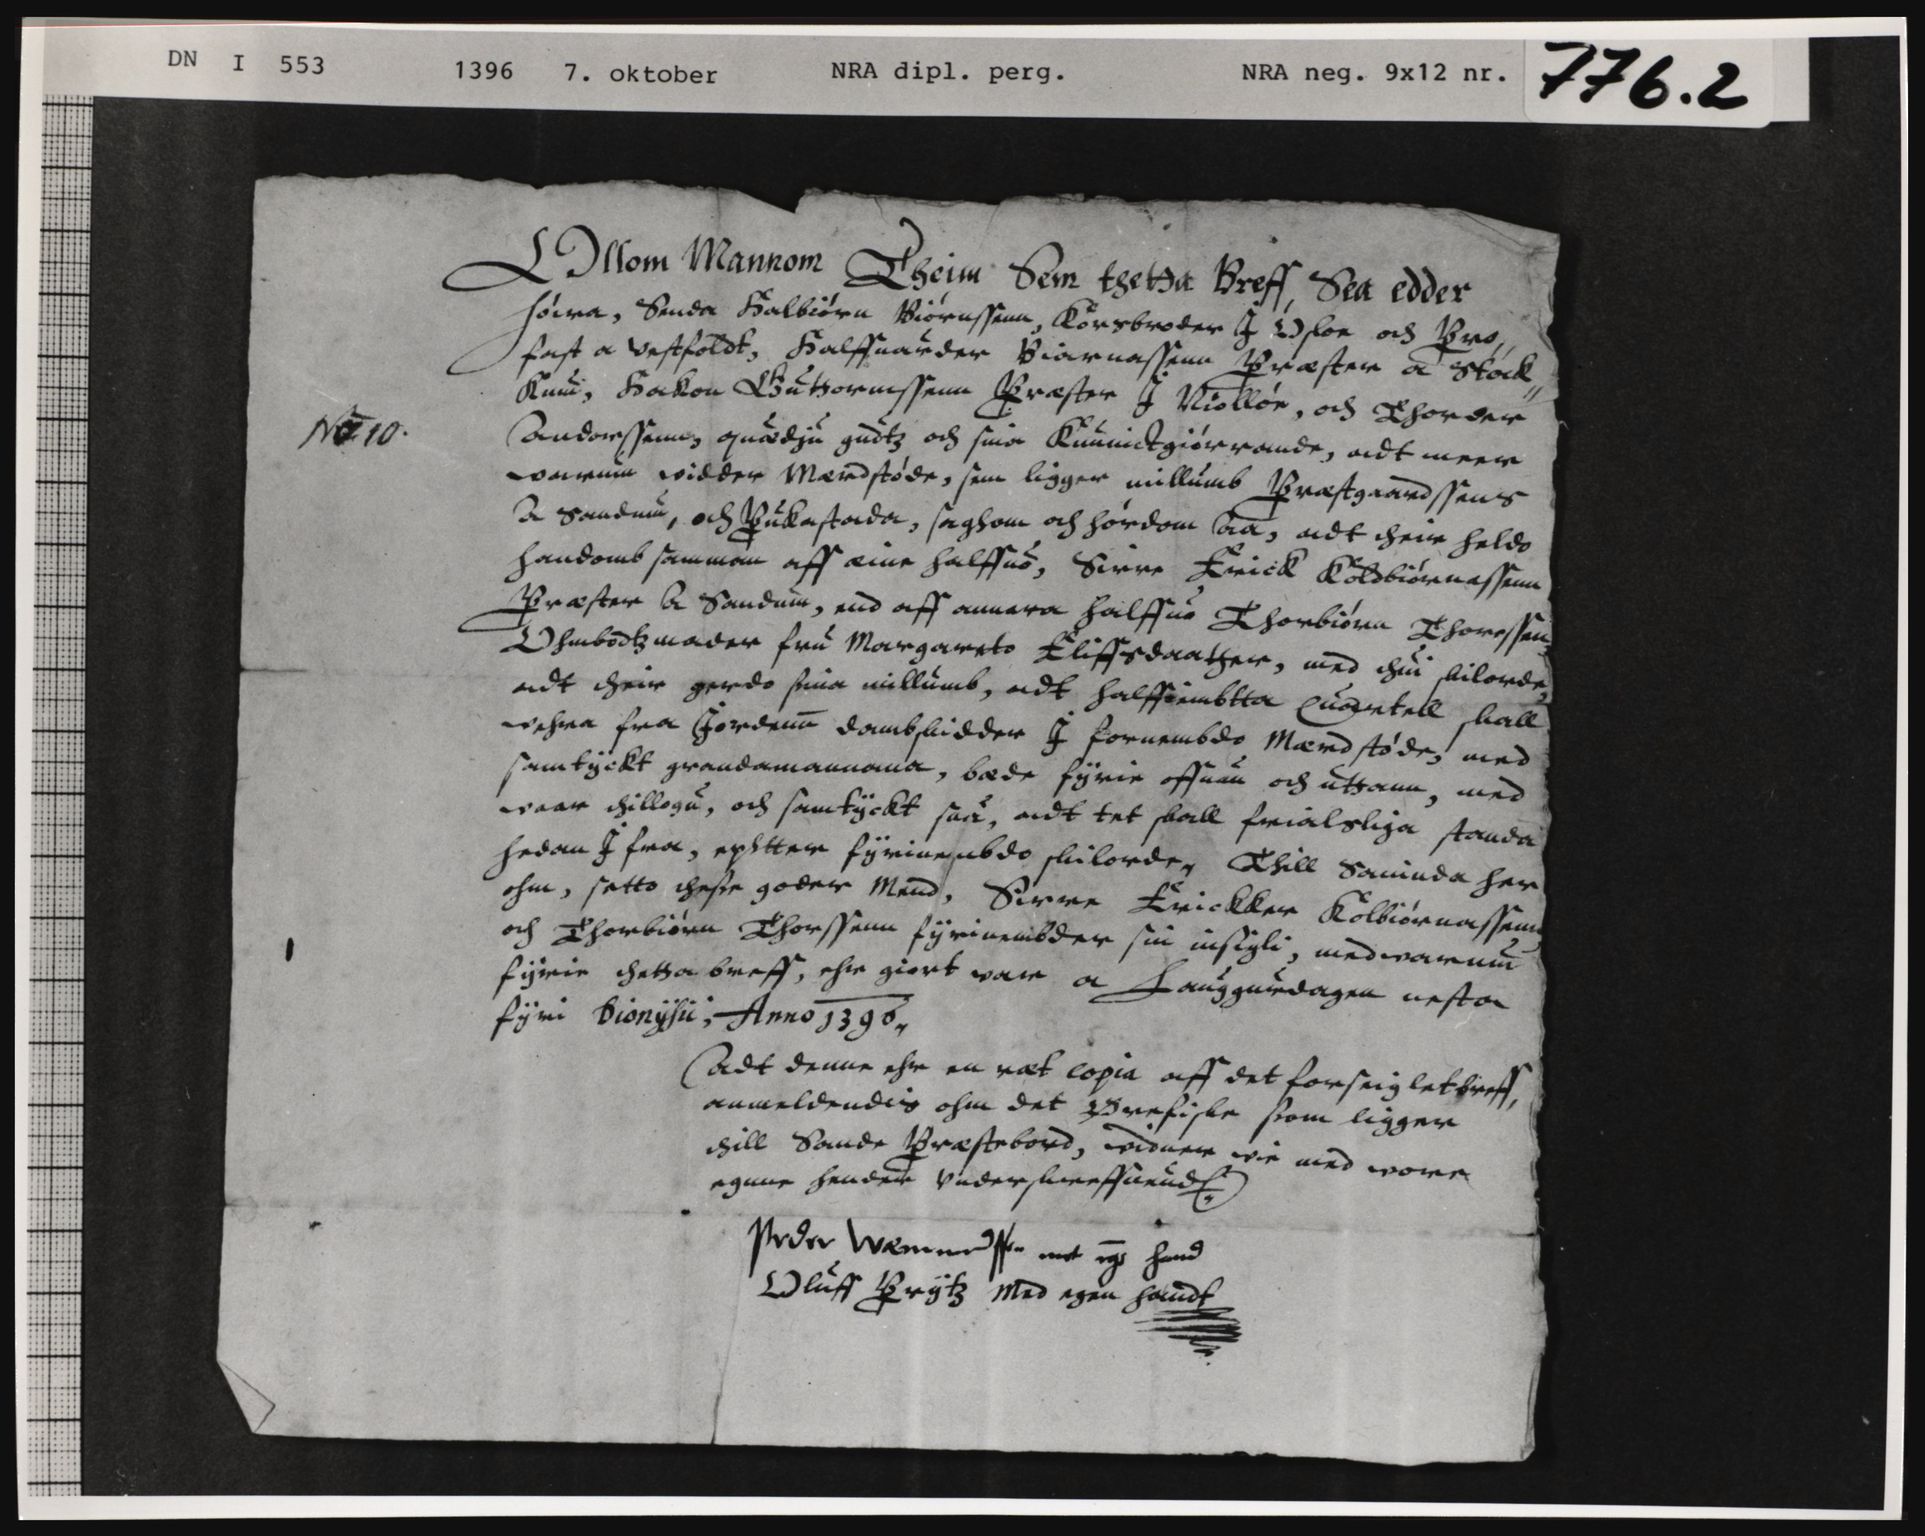 DN I 553 1396 7. oktober NRA dipl. perg. NRA neg. 9x12 nr. 776.2
Ollom Mannom Theim Sem thetta Breff, Sea edder
høira, Senda Halbiørn Biørnssenn, Korsbroder I Osloe och Pro,,
fast a Vestfoldt, Halffuarder Biarnassenn Præster a Stock,,
Knui, Hakon Guttormssenn Præster I Niølløe, och Thorder
Andorssenn, quædju gudtz och sina Kunnictgiørrande, adt meer
warum widder Mærdstøde, sem ligger millumb Præstgaardssens
A Sandum, och Pukastada, saghom och hørdom aa, adt their heldo
handomb samman aff eine halffuo, Sirre Erick Koldbiørnassenn
Præster A Sandum, end aff annara halffue Thorbiørn Thoressen,
Ohmbodtzmader fru Margareto Eliffsdaatther, med thui skilorde,
adt their gerdo sina millumb, adt halffiembtta Quartell skall
wehra fra Jordenn dambskidder I fornembdo Mærdstøde, med
samtyckt grandamannana, bæde fyrie offuan och uttann, med
waar thillogu, och samtyckt saa, adt tet skall frialsliga standa
hedan I fra, ephtter fyrinembdo skilorde, Thill Saninda her
ohm, setto thesse goder Mend, Sirre Erickker Kolbiørnassenn
och Thorbiørn Thorssenn fyrinembder sin insigli, med warum
fyrie thetta breff, ehr giort war a Lauggurdagen nesta
fyri Dionysii, Anno 1396,
No. 10.
Adt denne ehr en ræt copia aff det forseiglet breff,
anmeldendis ohm det Ørefiske som ligger
thill Sande Præstebord, widner wie med wore
egnne hender Underskreffuend
Peder met egen hand
Oluff Prytz Med egen handt